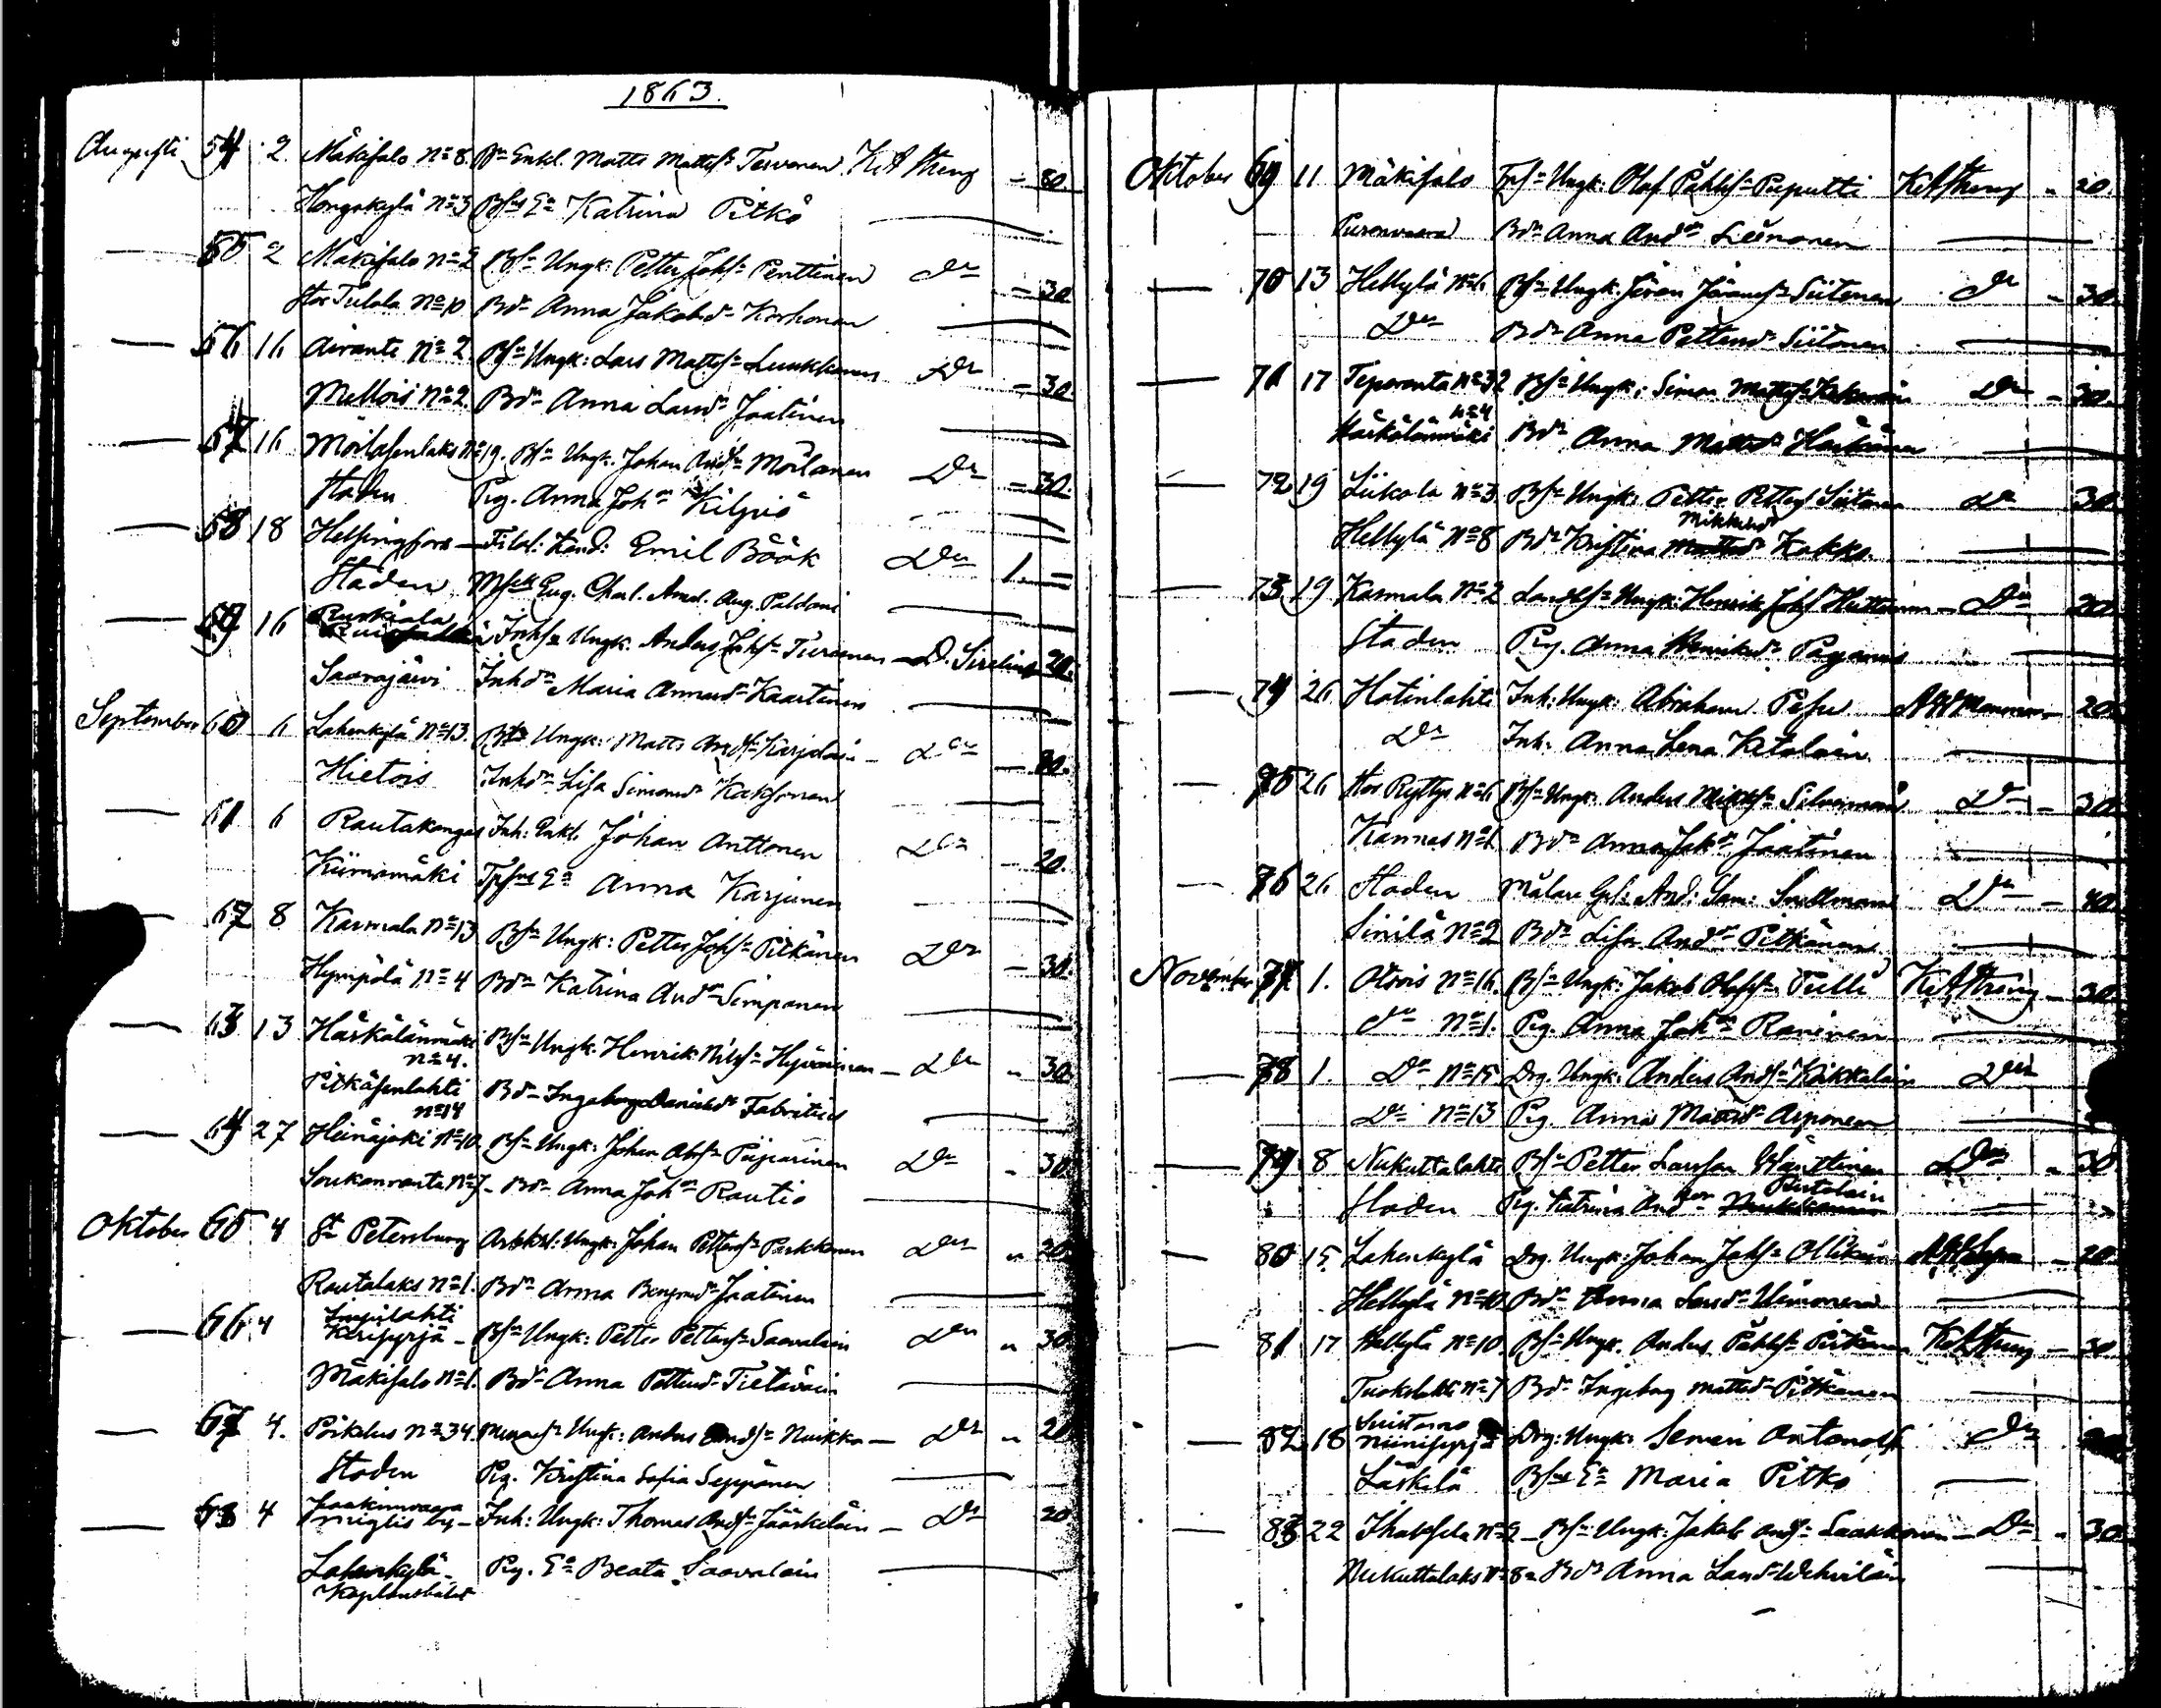 1863.
Augusti 54 2. Mäkisalo No 8. Bn Enkl. Matts Mattss Tervonen K. A. Streng - 80
Hongakylä No 3 Bsns Ea Katrina Pitkä
— 55 2 Mäkisalo No 2 Bsn Ungk: Petter Johss Penttinen Do - 30
Stor Tulola No 10 Bdr Anna Jakobsdr Korhonen
— 56 16 Airanto No 2 Bsn Ungk: Lars Mattss Luukkonen Do - 30.
Mellois No 2. Bdr Anna Larsdr Jaatinen
— 57 16 Moilasenlaks No 19. Bsn Ungk. Johan Andss Moilanen Do - 30.
Staden Pig. Anna Johdr Kilpiö
— 58 18 Helsingfors — Filos: Kand: Emil Böök Do 1. =
Staden Msell Eug. Charl. Amal. Aug. Paldani
— 59 16 Ruskiala Inhsn Ungk: Anders Johss Turunen — D. Sirelius 20.
Saarajärvi Inhdr Maria Andersdr Kaartinen
September 60 6 Lahenkylä No 13. Bsn Ungk: Matts Andss Karjalain - Do - 30.
Hietois Inhdr Lisa Simonsdr Kaksonen
— 61 6 Rautakangas Inh: Enkl. Johan Anttonen Do - 20.
Kiirismäki Tpsns Ea Anna Karjunen
— 62 8 Karmala No 13 Bsn Ungk: Petter Johss Pitkänen Do - 30.
Hympölä No 4 Bdr Katrina Anddr Simponen
— 63 13 Härkälänmäki No 4. Bsn Ungk. Henrik Nilss Hyvärinen - Do " 30
Pitkäsenlahti No 14 Bdr Ingeborg Danielsdr Fabritius
— 64 27 Heinäjoki No 10. Bsn Ungk: Johan Abss Piiparinen Do " 30
Soukanranta No 7 - Bdr Anna Johdr Rautio
Oktober 65 4 St Petersburg Arbkl: Ungk: Johan Petterss Parkkonen Do " 20
Rautalaks No 1. Bdr Anna Benjamsdr Jaatinen
— 66 4 Impilahti Kerisyrjä - Bsn Ungk: Petter Petterss Saavalain Do " 30
Mäkisalo No 1. Bdr Anna Pettersdr Tietäväin
— 67 4. Pörkelus No 34. Ungk: Anders Andss Nuikka - Do " 20
Staden Pig. Kristina Sofia Seppänen
— 68 4 Jaakimvaara miglis by - Inh: Ungk: Thomas Andss Jääskeläin - Do 20
Lahenkylä - Kaplansbolet Pig. Ea Beata Saavalain
Oktober 69 11 Mäkisalo Tpsn Ungk: Olof Påhlss Puputti K. A. Streng " 20.
Purenvaara Bdr Anna Anddr Leinonen
— 70 13 Helylä No 6 Bsn Ungk. Jöran Jöranss Siitonen Do - 30.
Do Bdr Anna Pettersdr Siitonen
— 71 17 Teperanta No 32 Bsn Ungk: Simon Mattss Do - 30.
Härkälänmäki No 4 Bdr Anna Mattsdr Härkönen
— 72 19 Liikola No 3 Bsn Ungk: Petter Petterss Siitonen Do 30.
Helylä No 8 Bdr Kristina Mikkelsdr Kokko.
— 73 19 Karmala No 2 Landbsn Ungk: Henrik Johss Huttunen - Do 20
Staden Pig. Anna Henriksdr Paganus
— 74 26 Hotinlahti Inh: Ungk: Abraham Pesu 20
Do Inh. Anna Lena Ketolain
— 75 26 Stor Ryttyo No 6 Bsn Ungk: Anders Mikkss Silvennoin Do - 30
Kannas No 1 Bdr Anna Johdr Jaatinen
— 76 26 Staden Målare Ges: And: Sam: Snellmann Do - 40
Sinilä No 2 Bdr Lisa Anddr Pitkänen
November 77 1. Otsois No 16. Bsn Ungk: Jakob Olofss Tulli K. A. Streng - 30
Do No 1. Pig. Anna Johdr Raninen
— 78 1. Do No 15. Drg. Ungk: Anders Andss Kokkolain Do
Do No 13 Pig Anna Mattsdr Asponen
— 79 8 Nukuttalahti Bsn Petter Larsson Wänttinen Do " 30
Staden Pig. Katrina Anddr Rustolain
— 80 15. Lahenkylä Drg. Ungk: Johan Johss Ollikain - 20
Helylä No 10. Bdr Anna Larsdr Uimonen
— 81 17 Helylä No 10. Bsn Ungk. Anders Påhlss Pitkänen K. A. Streng - 30
Tuokslahti No 7 Bdr Ingeborg Mattsdr Pitkänen
— 82 18 Suistamo Niinisyrjä Drg: Ungk: Semen Antonoff Do
Läskelä Bsns Ea Maria Pitko
— 83 22 Ihatsela No 2 - Bsn Ungk: Jakob Andss Laakkonen - Do " 30
Nukuttalaks No 8 - Bdr Anna Larsdr Wehviläin